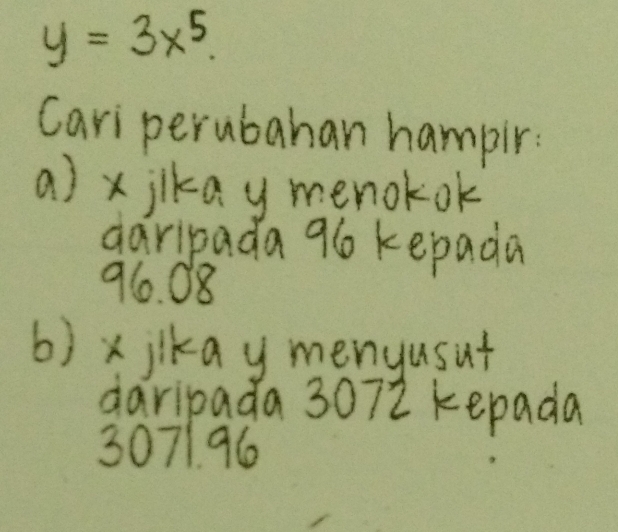 y = 3x⁵.
Cari perubahan hampir:
a) x jika y menokok
daripada 96 kepada
96.08
b) x jika y menyusut
daripada 3072 kepada
3071.96